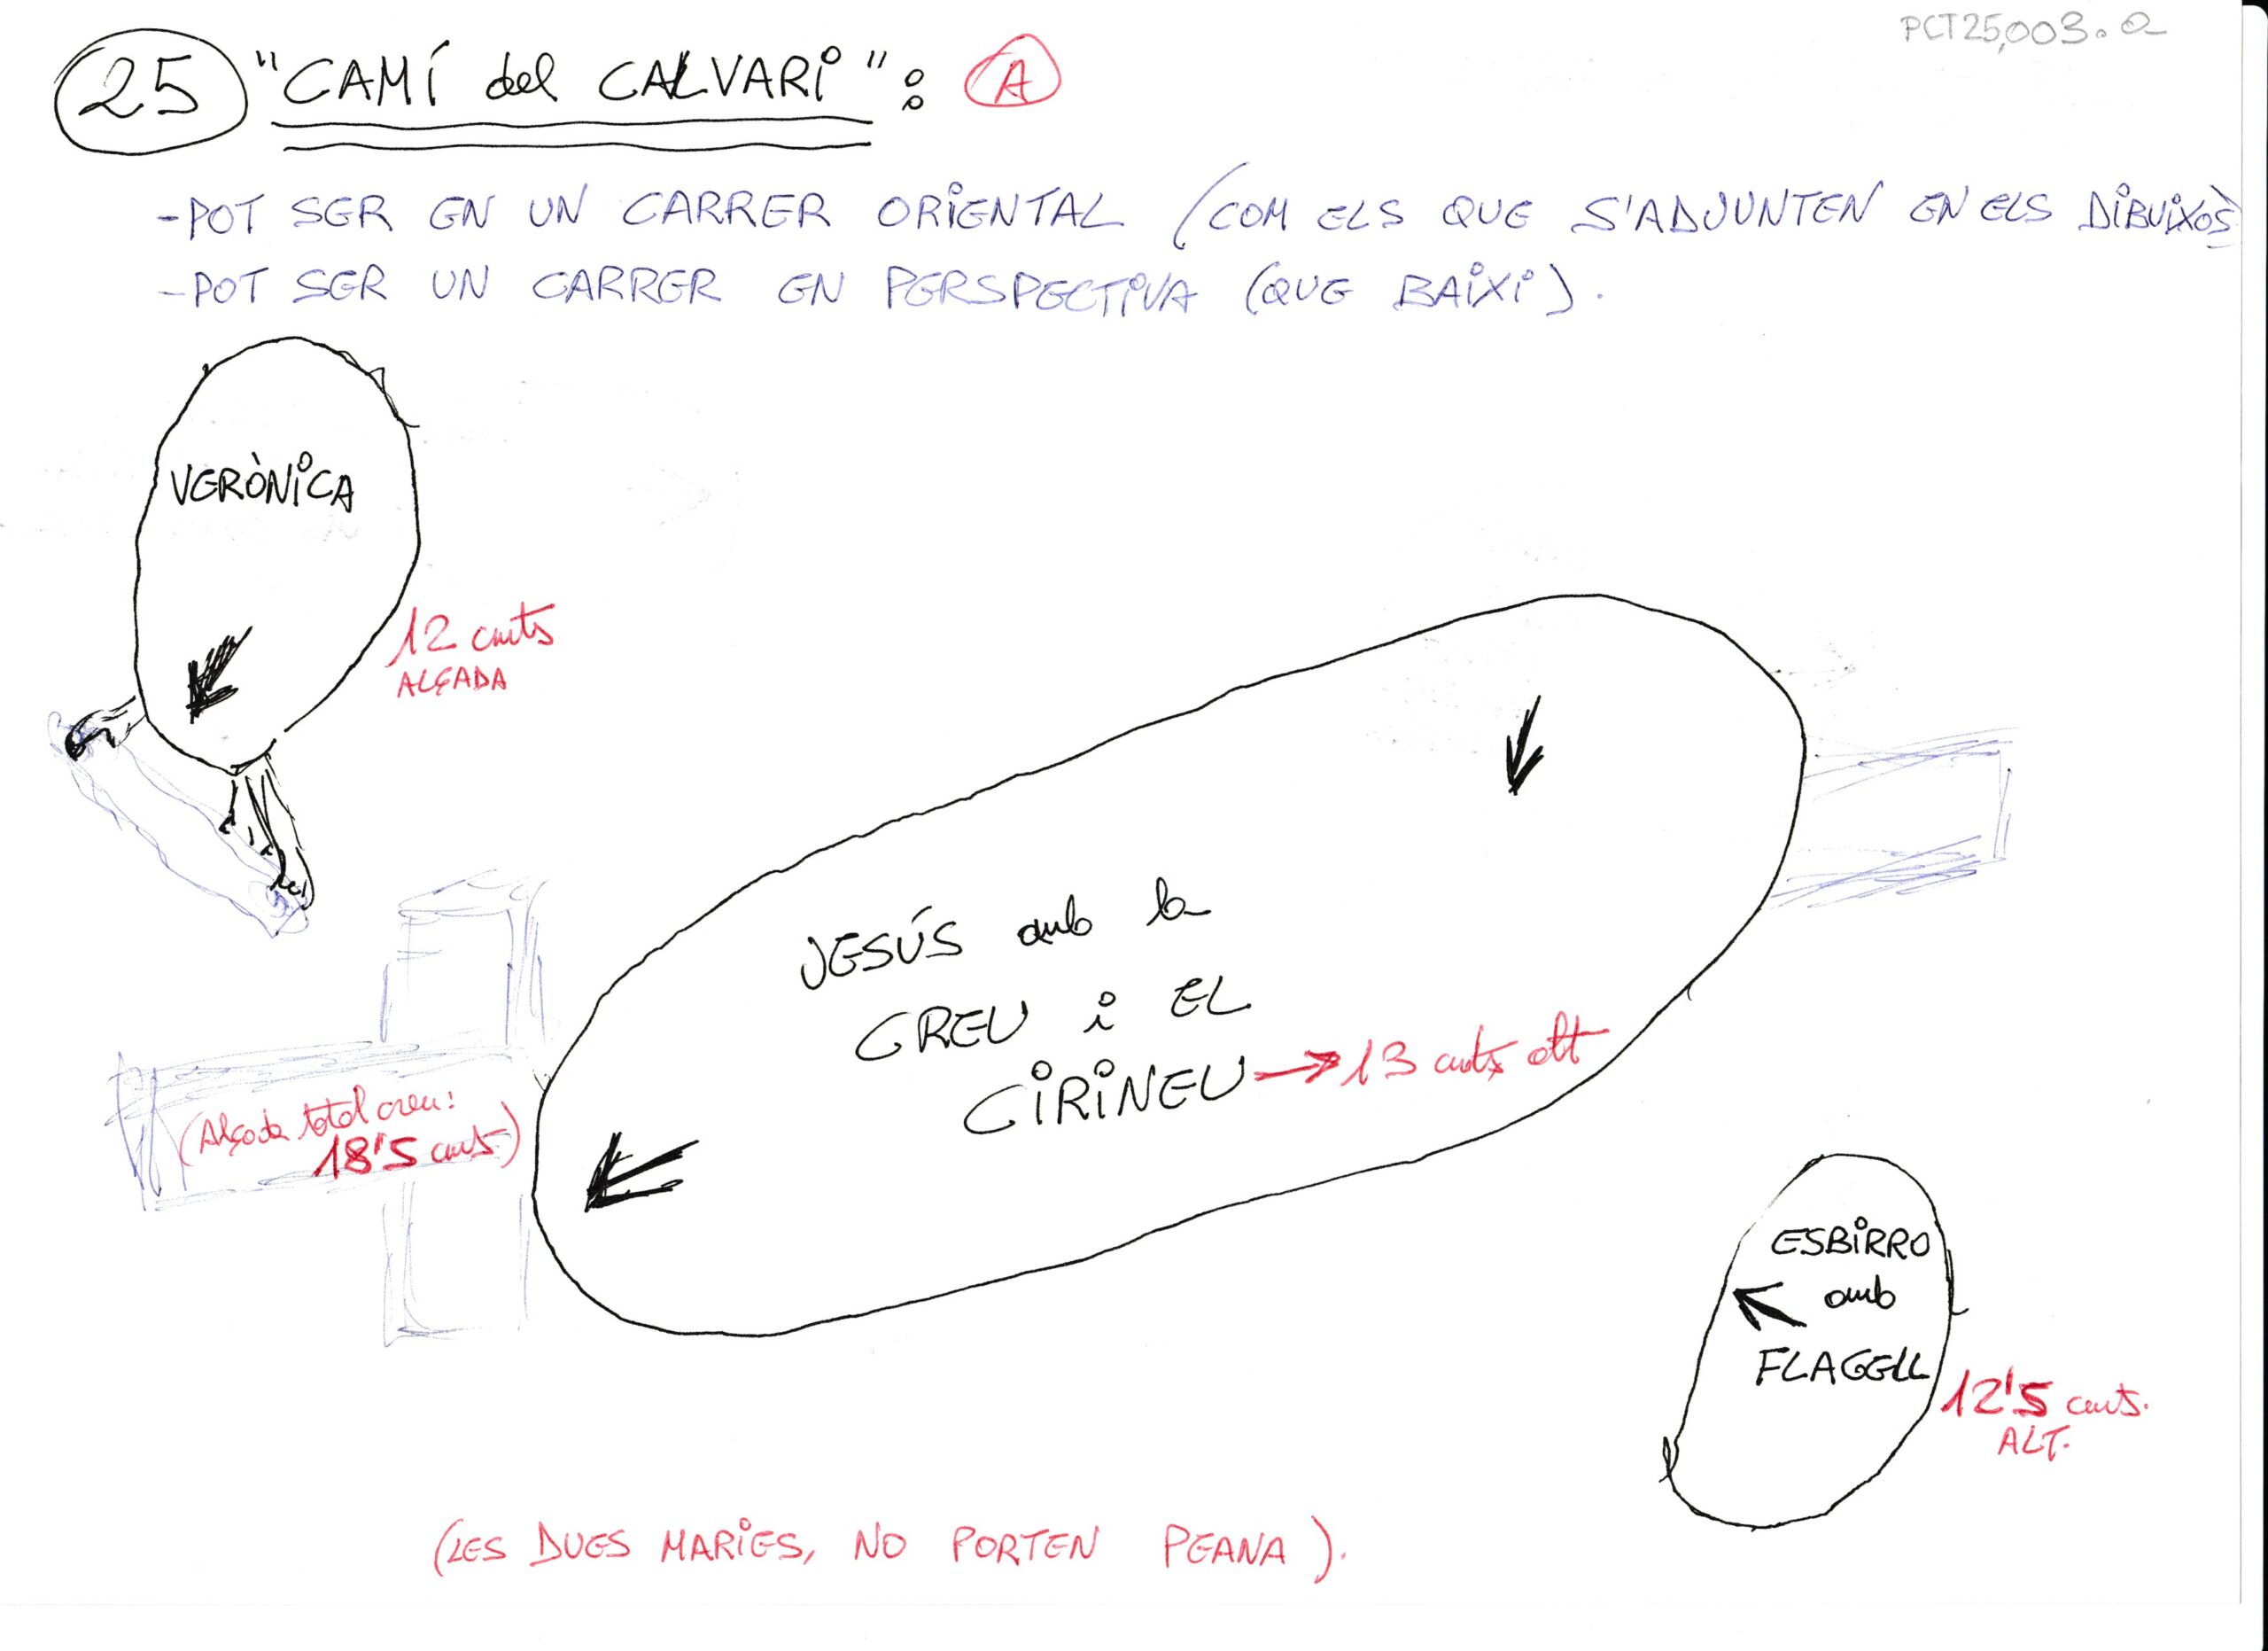 PCT25,003.a
25 "CAMÍ del CALVARI": A
-POT SER EN UN CARRER ORIENTAL (COM ELS QUE S'ADJUNTEN EN ELS DIBUIXOS)
-POT SER UN CARRER EN PERSPECTIVA (QUE BAIXI).
VERÒNICA
12 cmts
ALÇADA
JESÚS amb la
CREU i EL
CIRINEU → 13 cmts alt
(Alçada total creu:
18'5 cmts)
ESBIRRO
amb
FLAGELL
12'5 cmts.
ALT.
(LES DUES MARIES, NO PORTEN PEANA).